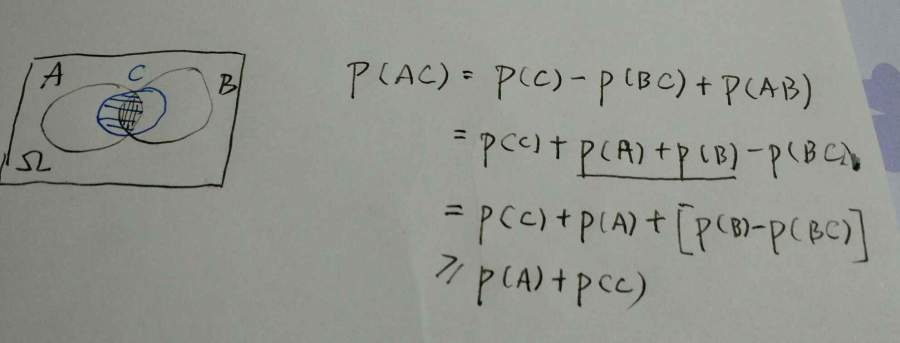 A C B
Ω
P(AC) = P(C) - P(BC) + P(AB)
= P(C) + P(A) + P(B) - P(BC)
= P(C) + P(A) + [P(B) - P(BC)]
≥ P(A) + P(C)